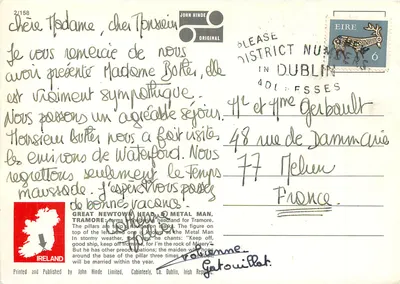 2/168
Chère Madame, cher Monsieur
Je vous remercie de nous
avoir présenté Madame Butler, elle
est vraiment sympathique.
Nous passons un agréable séjour.
Monsieur Butler nous a fait visiter
les environs de Waterford. Nous
regrettons seulement le temps
maussade. J'espère que vous passez
de bonnes vacances.
JOHN HINDE
ORIGINAL
PLEASE
DISTRICT NUMBER
IN DUBLIN
ADDRESSES
EIRE
6
Mr et Mme Gerbault
48 rue de Dammarie
77 Melun
France
IRELAND
GREAT NEWTOWN HEAD & METAL MAN,
TRAMORE
The pillars are
top of the
In stormy weather, he chants: "Keep off,
good ship, keep off from me, for I'm the rock of Misery".
But he has other preoccupations; the maiden who
around the base of the pillar three times
will be married within the year.
Fabienne
Getouillat
Printed and Published by John Hinde Limited, Cabinteely, Co. Dublin, Irish Republic